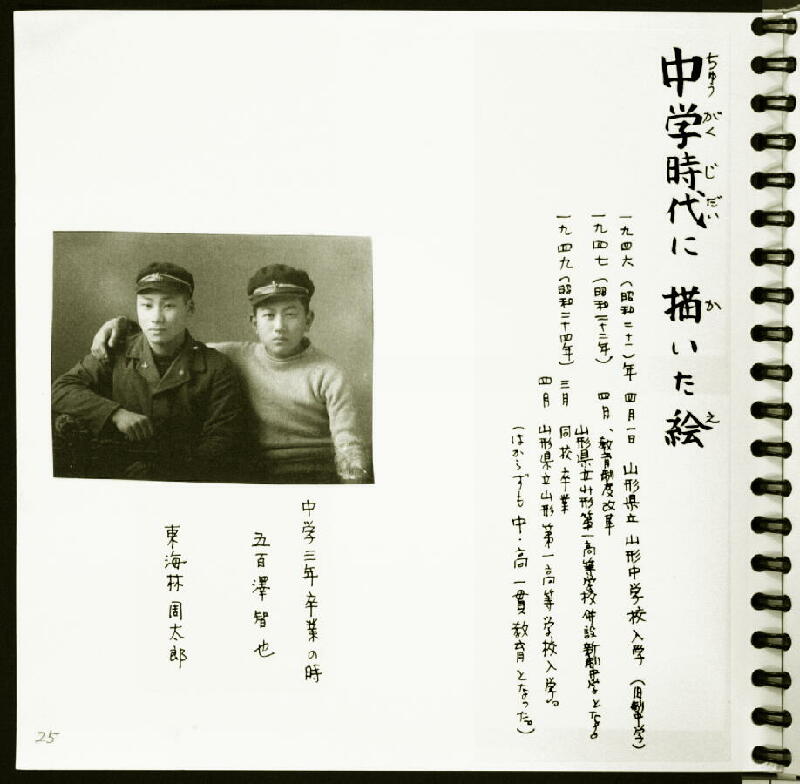 中学時代に 描いた絵
ちゅう がく じ だい か え
一九四六(昭和二十一)年 四月一日 山形県立 山形中学校入学 (旧制中学)
一九四七(昭和二十二年) 四月、教育制度改革
山形県立山形第一高等学校併設新制中学となる。
一九四九(昭和二十四年) 三月 同校卒業
四月 山形県立山形第一高等学校入学。
(はからずも中・高一貫教育となった。)
中学三年卒業の時
五百澤智也
東海林周太郎
25